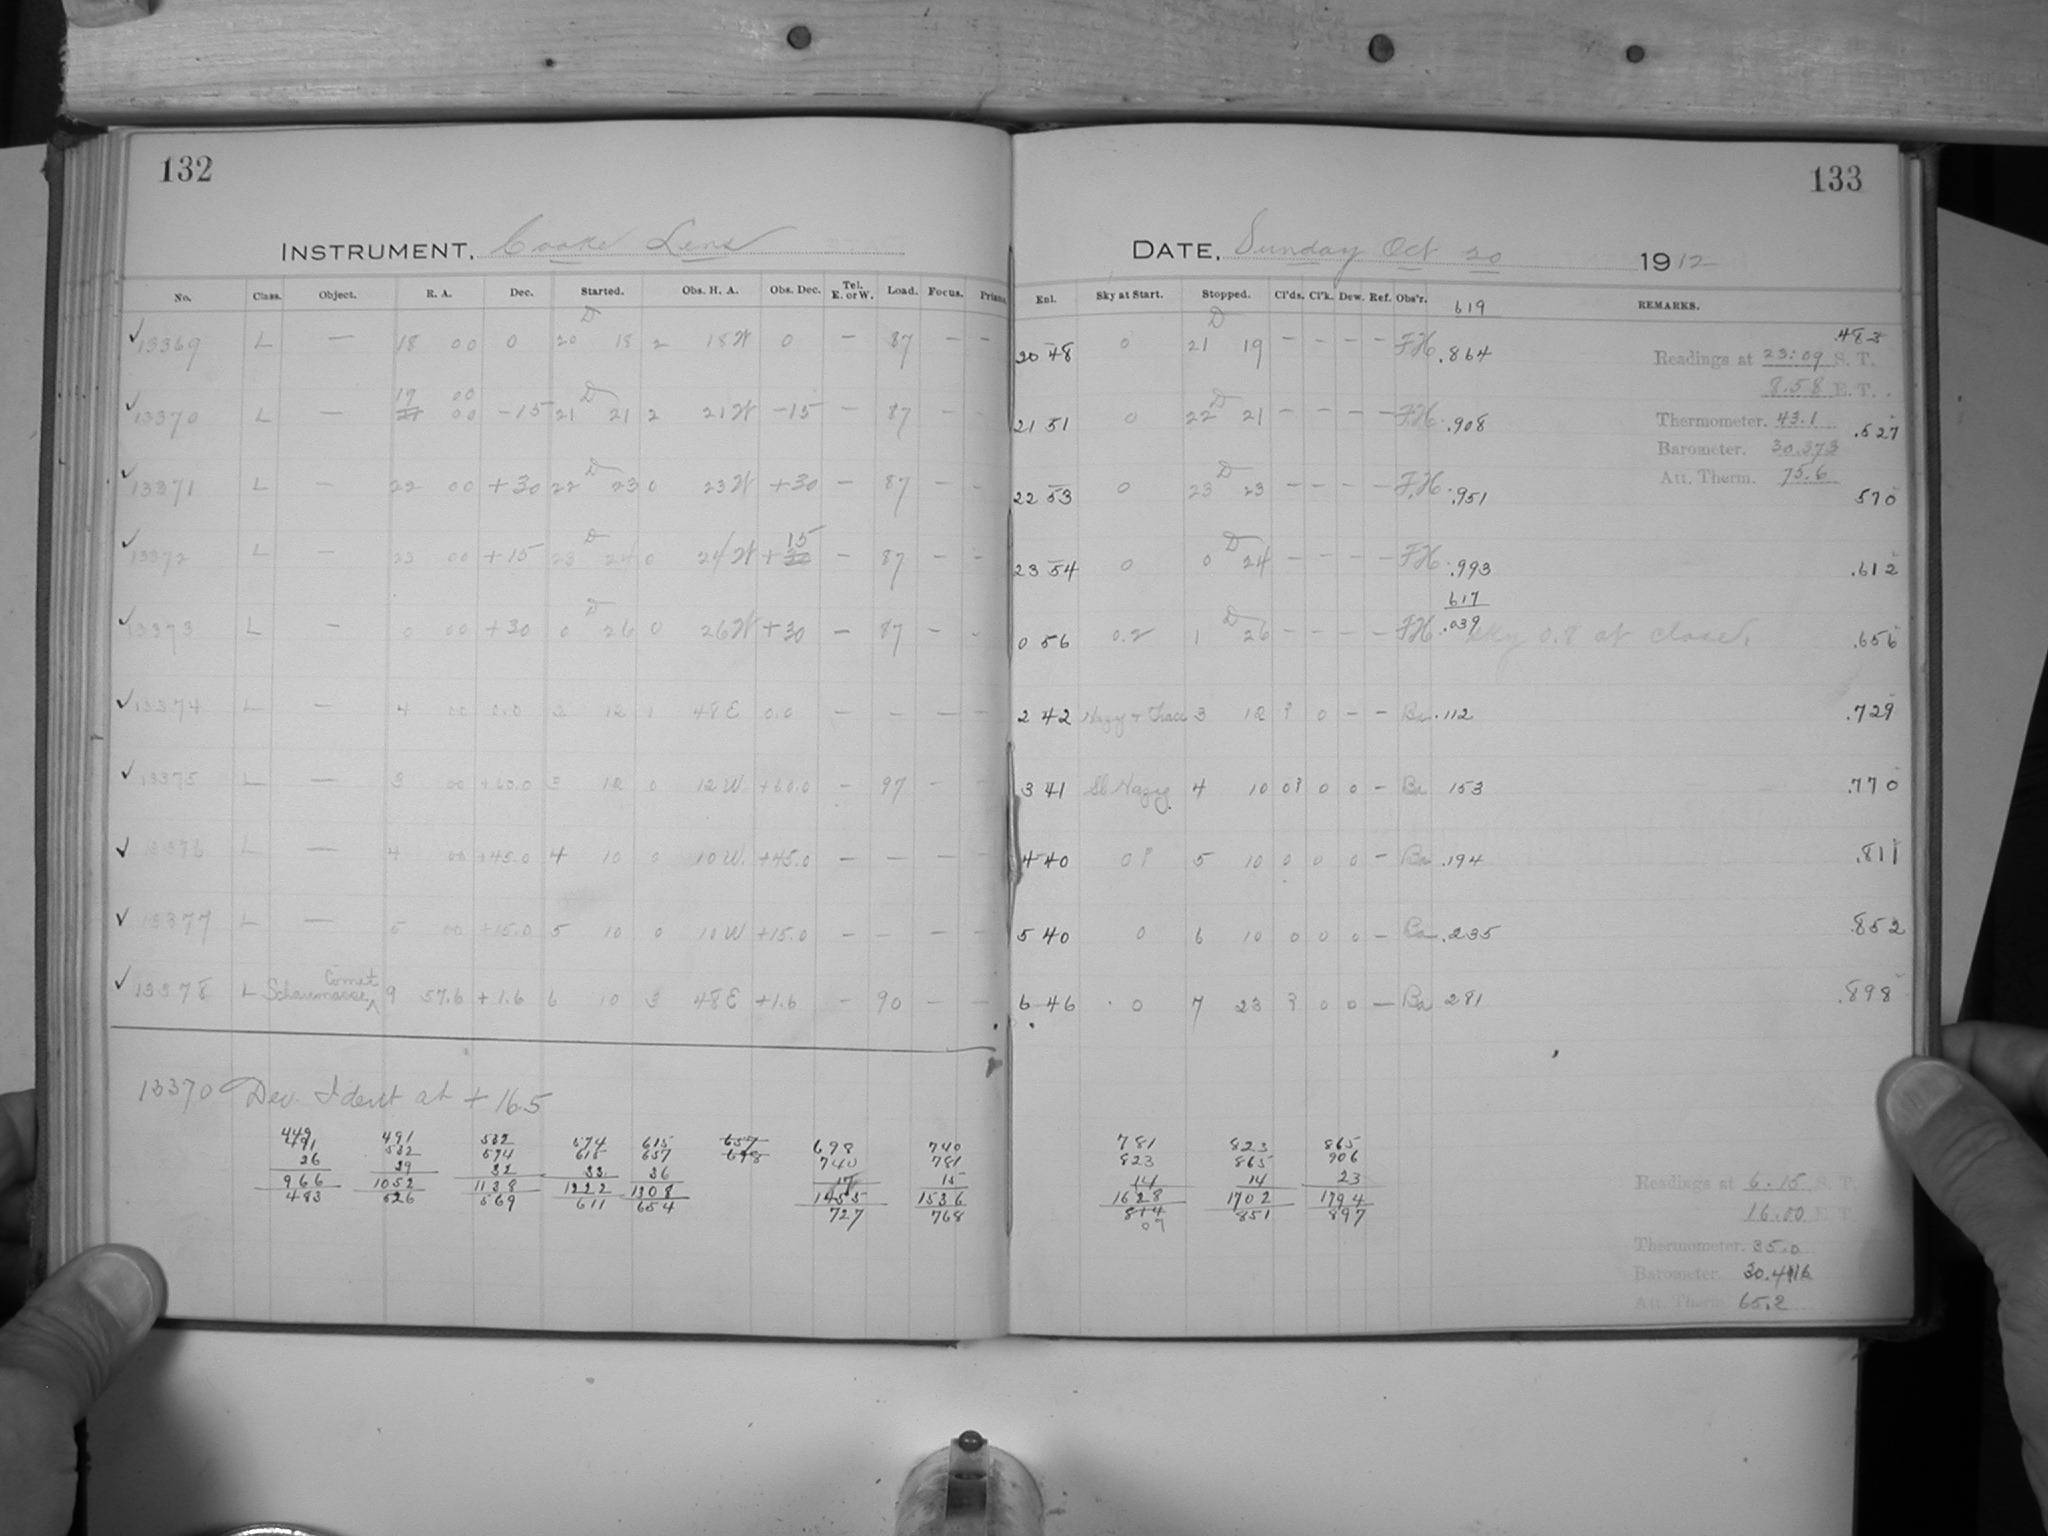 132
133
INSTRUMENT, Cooke Lens
DATE, Sunday Oct 20 1912
No. Class. Object. R. A. Dec. Started. Obs. H. A. Obs. Dec. Tel. E. or W. Load. Focus. Prisms. Exl. Sky at Start. Stopped. Cl'ds. Cl'k. Dew. Ref. Obs'r. 619 REMARKS.
✓ 13369 L — 18 00 0 20 D 18 2 18 W 0 — 87 — — 20 48 0 21 D 19 — — — — FH .864 .483
Readings at 23:09 S. T.
8.58 E. T.
17 00
✓ 13370 L — 21 00 -15 21 D 21 2 21 W -15 — 87 — — 21 51 0 22 D 21 — — — — FH .908 .527
Thermometer. 43.1
Barometer. 30.373
Att. Therm. 75.6
✓ 13371 L — 22 00 +30 22 D 23 0 23 W +30 — 87 — — 22 53 0 23 D 23 — — — — FH .951 570
15
✓ 13372 L — 23 00 +15 23 D 24 0 24 W + — 87 — — 23 54 0 0 D 24 — — — — FH .993 .612
617
✓ 13373 L — 0 00 +30 0 D 26 0 26 W +30 — 87 — — 0 56 0.2 1 D 26 — — — — FH .039 Sky 0.8 at close. .656
✓ 13374 L — 4 00 0.0 2 12 1 48 E 0.0 — — — — 2 42 Hazy & 3 12 ? 0 — — Ba .112 .729
✓ 13375 L — 3 00 +60.0 3 12 0 12 W +60.0 — 97 — — 3 41 Sl Hazy 4 10 0? 0 0 — Ba 153 .770
✓ 13376 L — 4 00 +45.0 4 10 0 10 W. +45.0 — — — — 4 40 0? 5 10 0 0 0 — Ba .194 .811
✓ 13377 L — 5 00 +15.0 5 10 0 10 W +15.0 — — — — 5 40 0 6 10 0 0 0 — Ba .235 .852
Comet
✓ 13378 L Schaumasse 9 57.6 +1.6 6 10 3 48 E +1.6 — 90 — — 6 46 0 7 23 ? 0 0 — Ba 281 .898
13370 Dec. Ident at + 16.5
449 491 532 574 615 657 698 740 781 823 865
491 532 574 615 657 698 740 781 823 865 906
26 29 32 33 36 17 15 14 14 23
966 1052 1138 1222 1308 1455 1536 1628 1702 1794
483 526 569 611 654 727 768 814 851 897
09
Readings at 6.15 S. T.
16.00 E. T.
Thermometer. 35.0
Barometer. 30.416
Att. Therm. 65.2